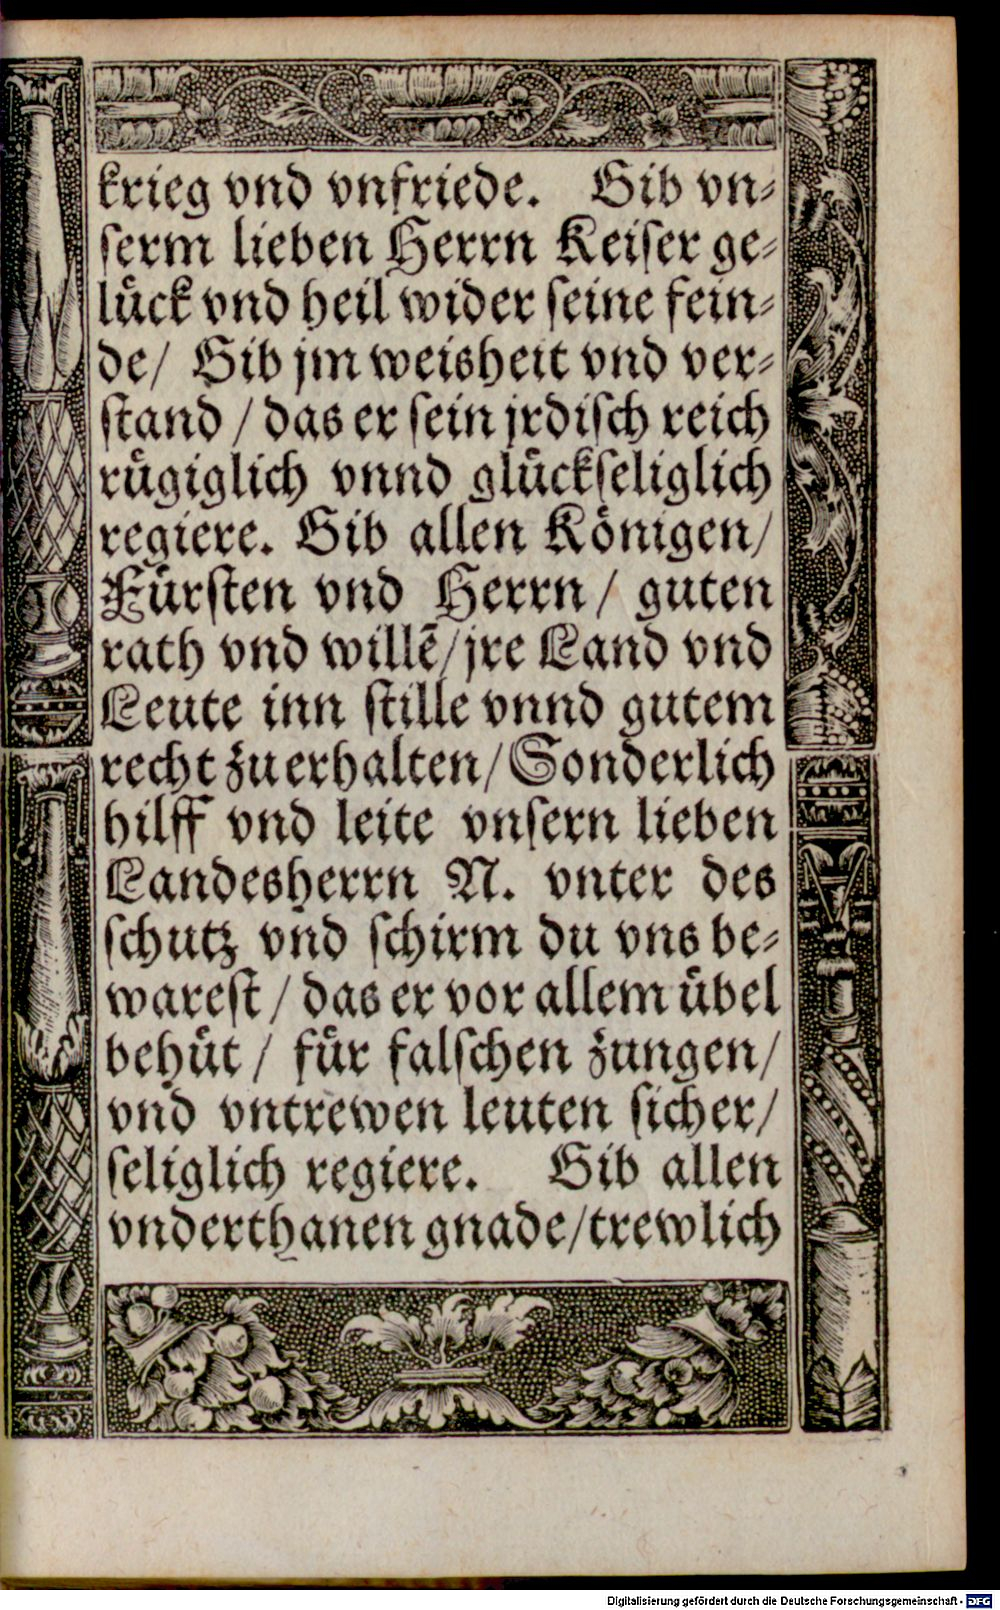 krieg vnd vnfriede. Gib vn⸗
serm lieben Herrn Keiser ge⸗
lück vnd heil wider seine fein⸗
de/ Gib jm weisheit vnd ver⸗
stand / das er sein jrdisch reich
rügiglich vnnd glückseliglich
regiere. Gib allen Königen/
Fürsten vnd Herrn / guten
rath vnd willē/jre Land vnd
Leute inn stille vnnd gutem
recht zu erhalten/ Sonderlich
hilff vnd leite vnsern lieben
Landesherrn N. vnter des
schutz vnd schirm du vns be⸗
warest / das er vor allem übel
behüt / für falschen zungen/
vnd vntrewen leuten sicher/
seliglich regiere. Gib allen
vnderthanen gnade/trewlich
Digitalisierung gefördert durch die Deutsche Forschungsgemeinschaft - DFG